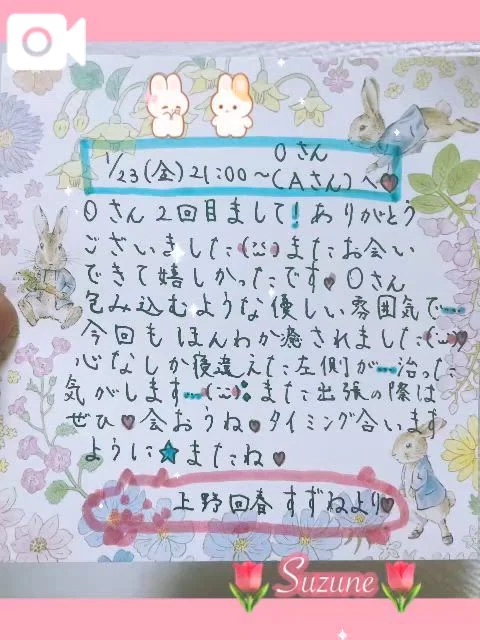 Oさん
1/23(金)21:00〜(Aさん)へ♥
Oさん2回目まして!ありがとう
ございました(¨̮)またお会い
できて嬉しかったです♥Oさん
包み込むような優しい雰囲気で…
今回もほんわか癒されました(¨̮)♥
心なしか寝違えた左側が…治った
気がします…(¨̮)また出張の際は
ぜひ♥会おうね♥タイミング合います
ように★またね♥
上野回春すずねより♥
Suzune